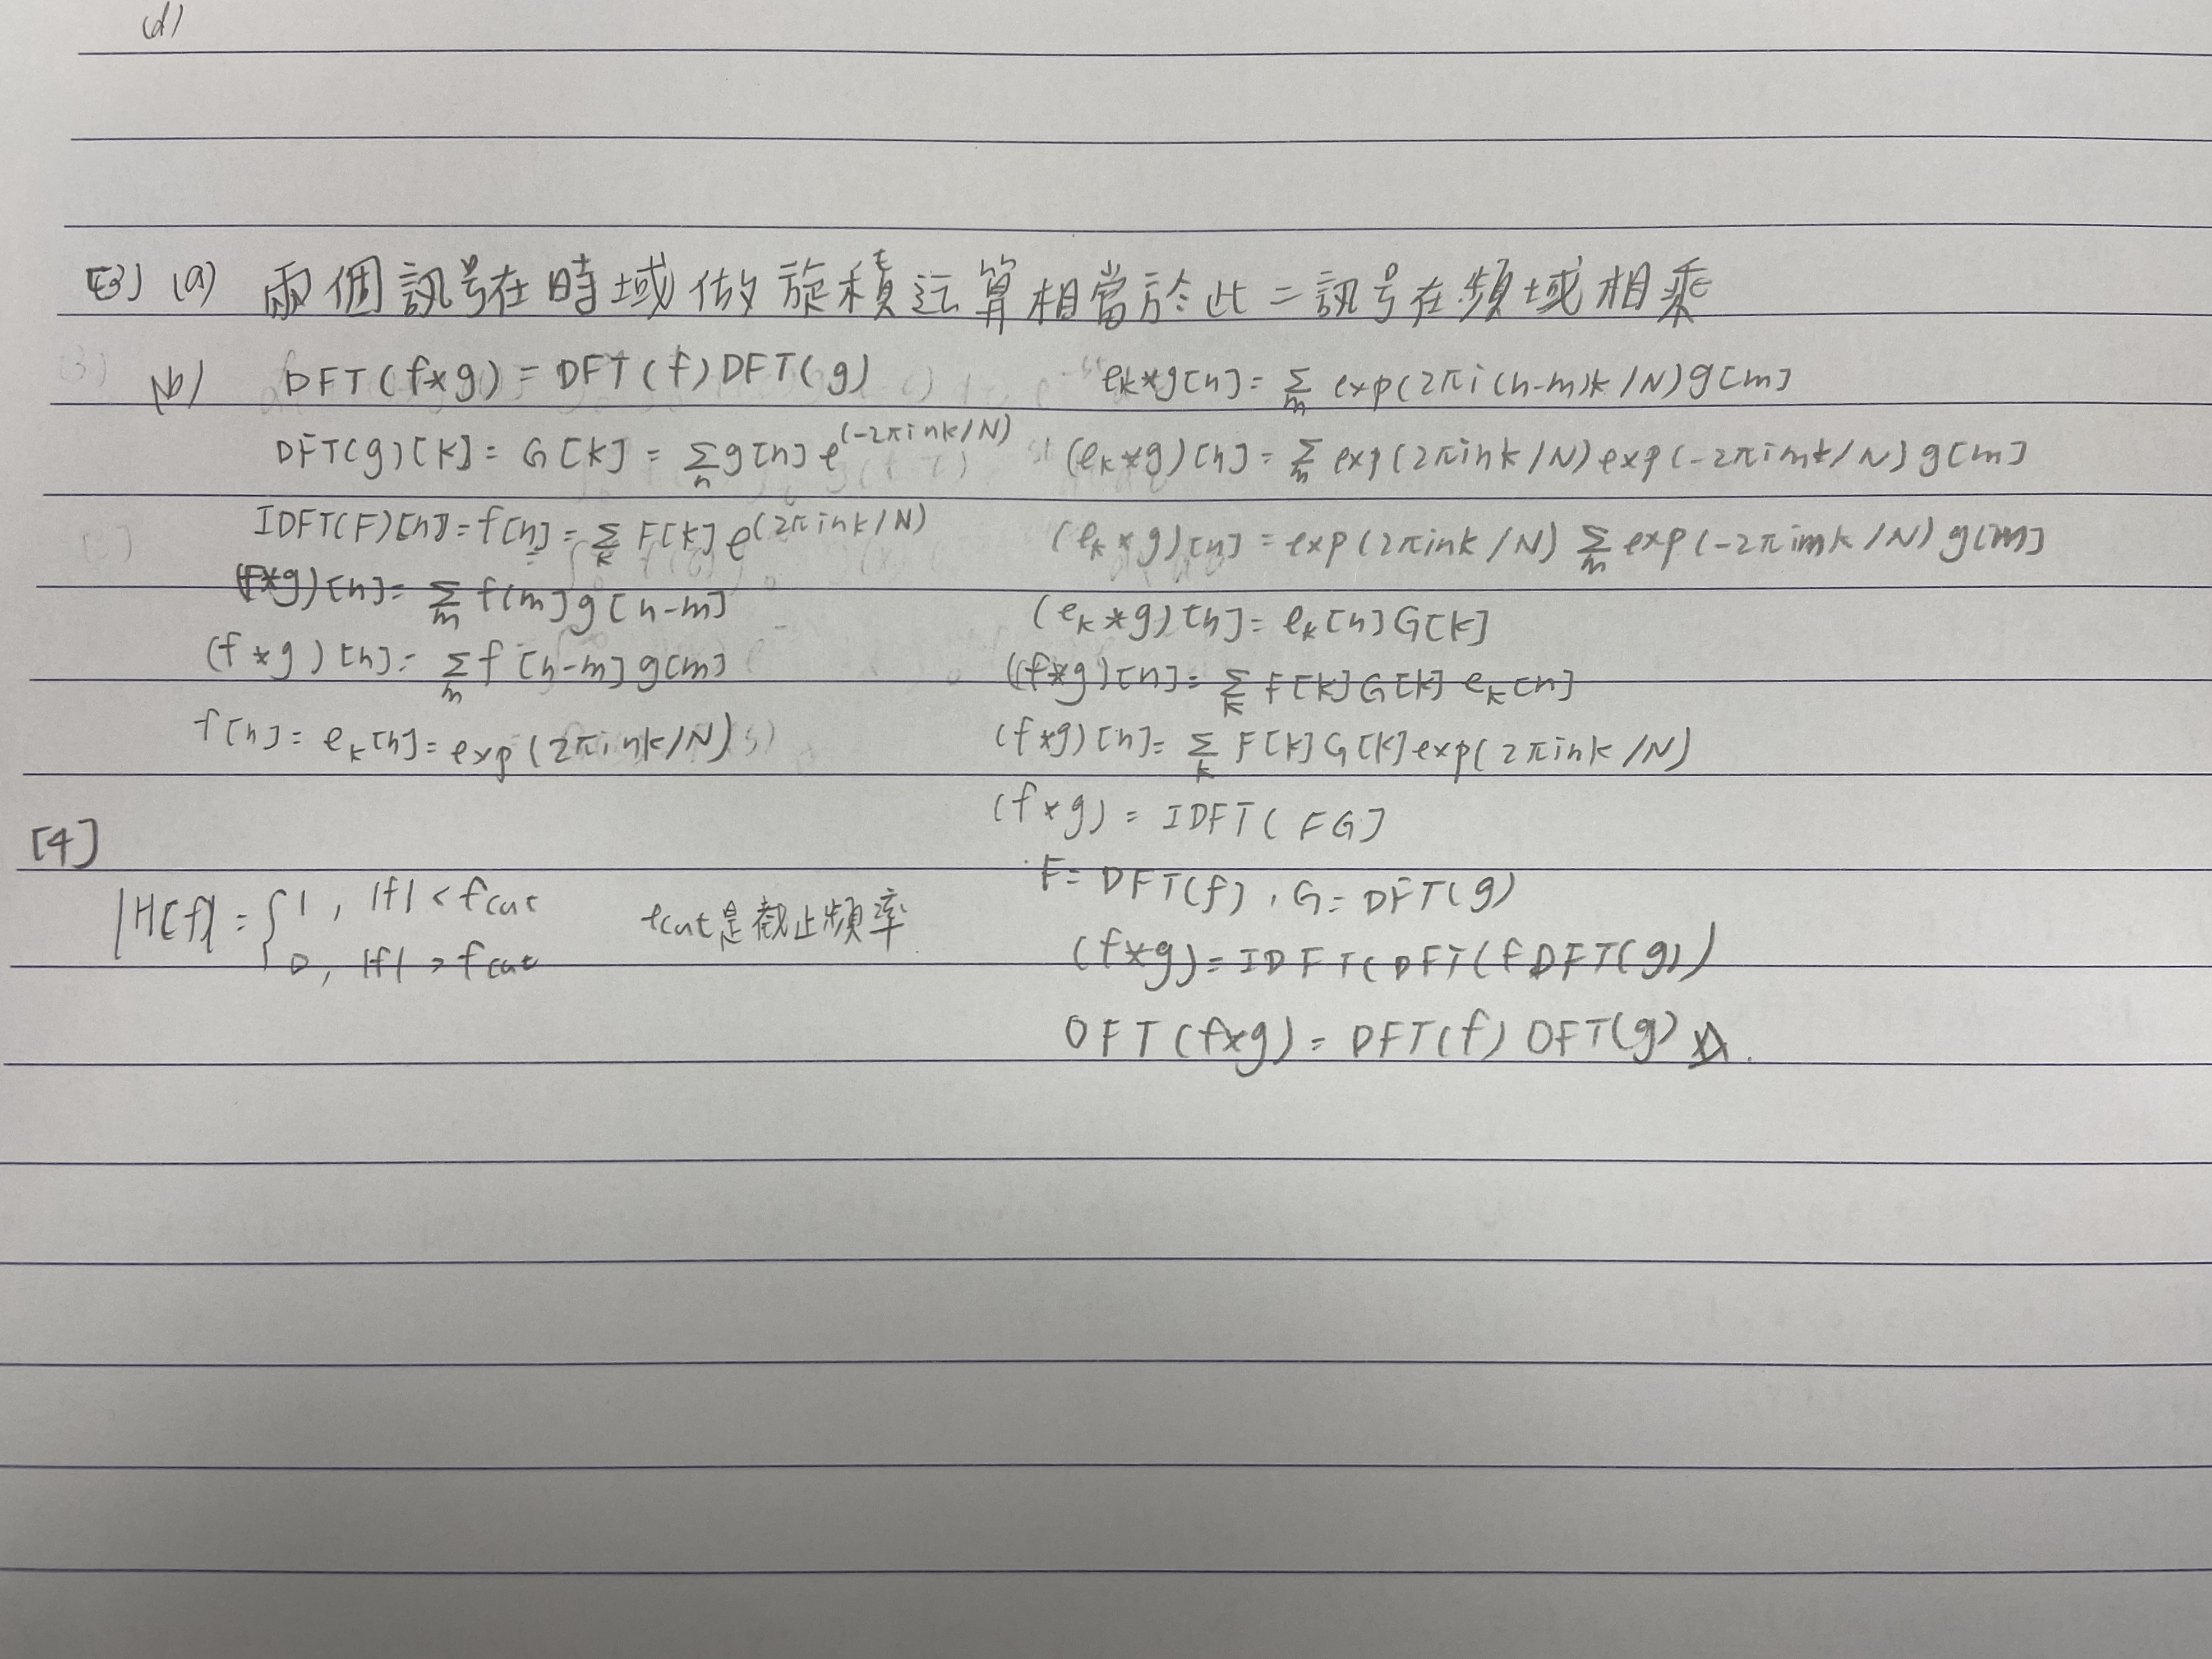 (d)
[3] (a) 兩個訊号在時域做旋積运算相當於此二訊号在頻域相乘
(b) DFT(f*g) = DFT(f)DFT(g)
DFT(g)[k] = G[k] = Σ_n g[n] e^(-2πink/N)
IDFT(F)[n] = f[n] = Σ_k F[k] e^(2πink/N)
(f*g)[n] = Σ_m f[m]g[n-m]
(f*g)[n] = Σ_m f[n-m]g[m]
f[n] = e_k[n] = exp(2πink/N)
e_k*g[n] = Σ_m exp(2πi(n-m)k/N)g[m]
(e_k*g)[n] = Σ_m exp(2πink/N)exp(-2πimk/N)g[m]
(e_k*g)[n] = exp(2πink/N) Σ_m exp(-2πimk/N)g[m]
(e_k*g)[n] = e_k[n]G[k]
(f*g)[n] = Σ_k F[k]G[k] e_k[n]
(f*g)[n] = Σ_k F[k]G[k]exp(2πink/N)
(f*g) = IDFT(FG]
F = DFT(f), G = DFT(g)
(f*g) = IDFT(DFT(fDFT(g))
DFT(f*g) = DFT(f)DFT(g)
[4]
|H[f| = { 1, |f| < fcut
0, |f| > fcut
fcut是截止頻率